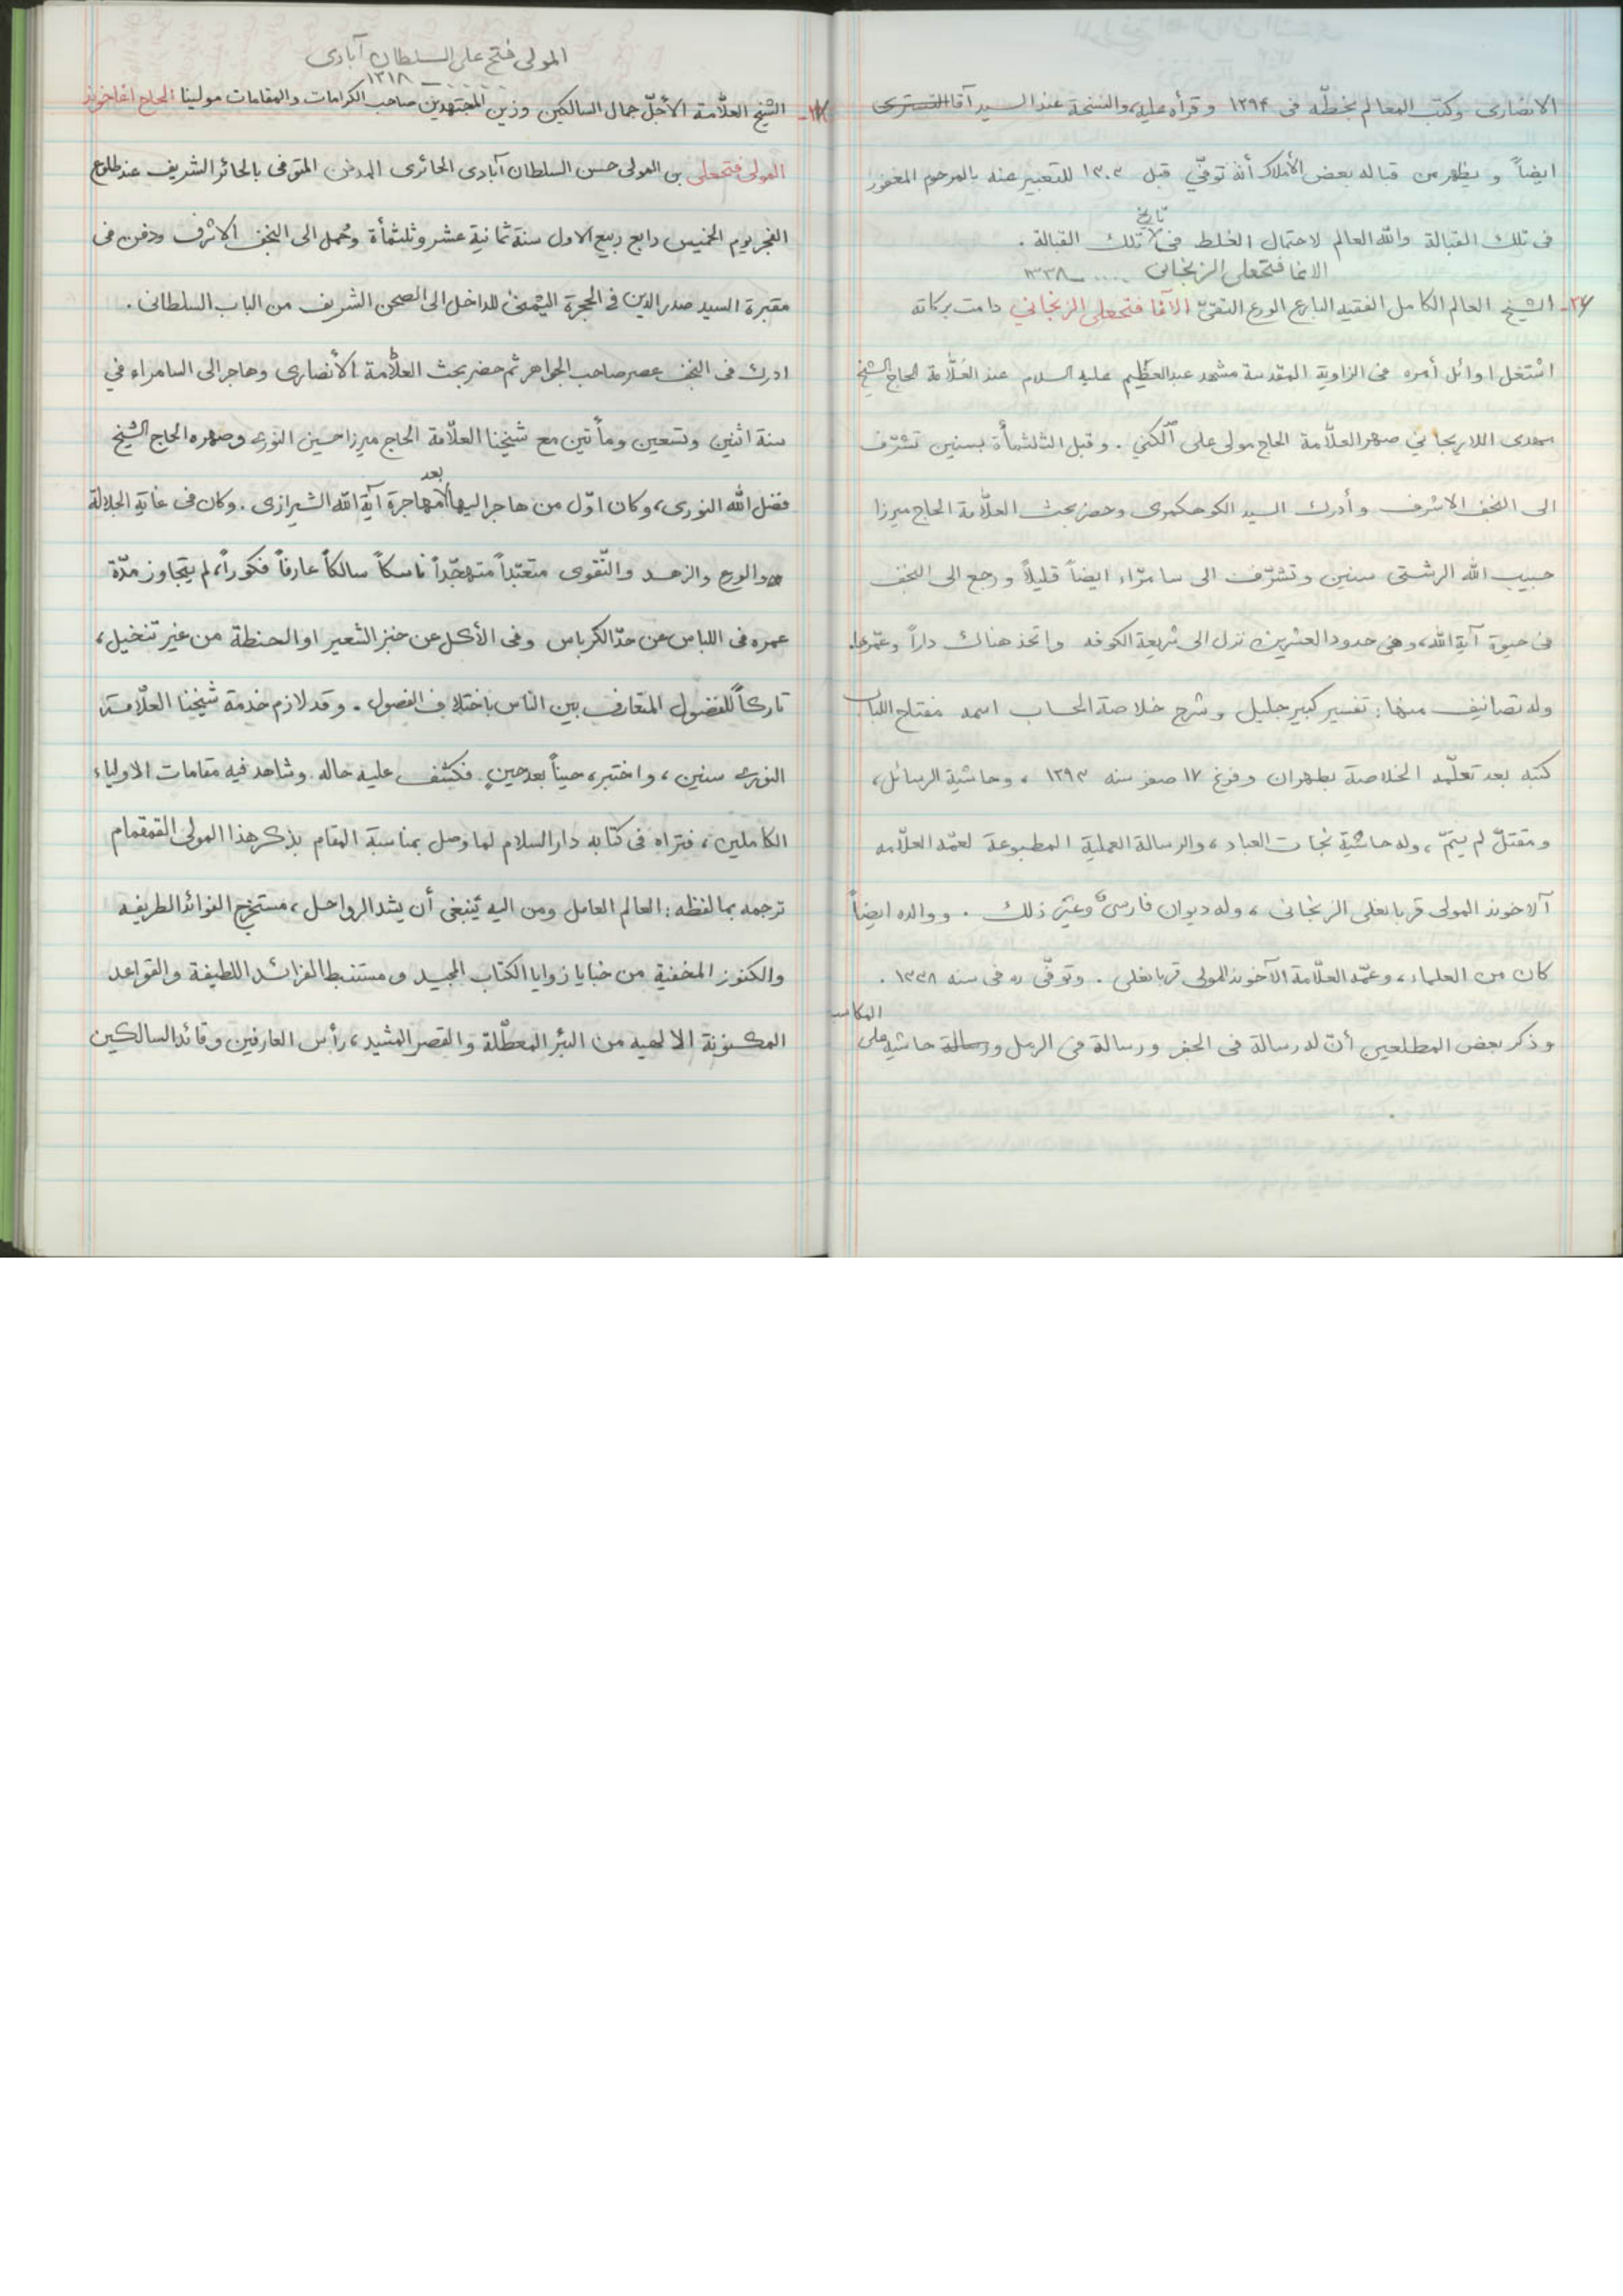 الانصاری وكتب المعالم بخطّه فى ١٢٩۴ و قرأه عليه، والنسخة عند السيد آقا التسترى
ايضاً و يظهر من قباله بعض الأملاك أنه توفّي قبل ١٣٠٣ للتعبير عنه بالمرحوم المغفور
تاريخ
فى تلك القبالة والله العالم لاحتمال الغلط فى تلك القبالة .
الاغا فتحعلى الزنجانى .... ـ ١٣٣٨
الشيخ العالم الكامل الفقيه البارع الورع التقىّ الآقا فتحعلى الزنجاني دامت بركاته
اشتغل اوائل أمره فى الزاوية المقدسة مشهد عبدالعظيم عليه السلام عند العلّامة الحاج الشيخ
مهدى اللاريجاني صهر العلّامة الحاج مولى على الكني . و قبل الثلثمأة بسنين تشرّف
الى النجف الاشرف وأدرك السيد الكوهكمرى وحضر بحث العلّامة الحاج ميرزا
حبيب الله الرشتى سنين وتشرّف الى سامرّاء ايضاً قليلاً و رجع الى النجف
فى حيوة آية الله، وفى حدود العشرين نزل الى شريعة الكوفه واتخذ هناك داراً وعمّرها.
وله تصانيف منها: تفسير كبير جليل وشرح خلاصة الحساب اسمه مفتاح اللباب
كتبه بعد تعلّمه الخلاصة بطهران وفرغ ١٧ صفر سنه ١٢٩٣ ، وحاشية الرسائل،
ومقتل لم يتمّ ، وله حاشية نجات العباد ، والرسالة العملية المطبوعة لعمّه العلّامه
آلاخوند المولى قربانعلى الزنجانى ، وله ديوان فارسى وغير ذلك . ووالده ايضاً
كان من العلماء، وعمّه العلّامة الآخوند المولى قربانعلى . وتوفّى ره فى سنه ١٣٣٨ .
المكاسب
وذكر بعض المطلعين أنّ له رسالة فى الجفر ورسالة فى الرمل ورسالة حاشية على
المولى فتح على السلطان آبادى
ـ ١٣١٨
الشيخ العلّامة الأجلّ جمال السالكين وزين المجتهدين صاحب الكرامات والمقامات مولينا الحاج اغاخوند
المولى فتحعلى بن المولى حسن السلطان آبادى الحائرى المدفن المتوفى بالحائر الشريف عند طلوع
الفجر يوم الخميس رابع ربيع الاول سنة ثمانية عشر وثلثمأة وحُمل الى النجف الاشرف ودفن فى
مقبرة السيد صدر الدين فى الحجرة اليمنى للداخل الى الصحن الشريف من الباب السلطانى .
ادرك فى النجف عصر صاحب الجواهر ثم حضر بحث العلّامة الأنصارى وهاجر الى السامراء في
سنة اثنين وتسعين ومأتين مع شيخنا العلّامة الحاج ميرزا حسين النورى وصهره الحاج الشيخ
بعد
فضل الله النورى، وكان اوّل من هاجر اليها مهاجرة آية الله الشيرازى . وكان فى غاية الجلالة
والورع والزهد والتّقوى متعبّداً متهجّداً ناسكاً سالكاً عارفاً فكوراً، لم يتجاوز مدّة
عمره فى اللباس عن حدّ الكرباس وفى الأكل عن خبز الشعير او الحنطة من غير تنخيل،
تاركاً للفضول المتعارف بين الناس باختلاف الفصول . وقد لازم خدمة شيخنا العلّامة
النورى سنين ، واختبره حيناً بعد حينٍ فكشف عليه حاله وشاهد فيه مقامات الاولياء
الكاملين ، فتراه فى كتابه دار السلام لما وصل بمناسبة المقام بذكر هذا المولى القمقام
ترجمه بما لفظه : العالم العامل ومن اليه ينبغى أن يشد الرواحل ، مستخرج الفوائد الطريفه
والكنوز المخفية من خبايا زوايا الكتاب المجيد و مستنبط الفرائد اللطيفة والقواعد
المكنونة الالهيه من البئر المعطّلة والقصر المشيد ، رأس العارفين وقائد السالكين